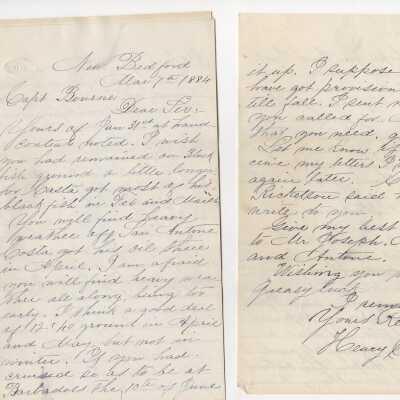 New Bedford
Mar 7th 1884
Capt Bourne
Dear Sir:
Yours of Jan 31st at hand
content noted. I wish
you had remained on Black
fish ground a little longer
for Costa got most of his
blackfish in Feb and March
You will find heavy
weather off San Antone
Costa got his oil there
in April. I am afraid
you will find heavy wea
ther all along being too
early. I think a good deal
of 12.40 ground in April
and May but not in
winter. If you had
cruised so as to be at
Barbados the 10th of June
it up. I suppose
have got provision
till fall. I sent
you called for
that you need,
Let me know
ceive my letters I
again later.
Ricketson said
write to you
Give my best
to Mr Joseph.
and Antone.
Wishing you
Greasy luck
I remain
Yours
Henry